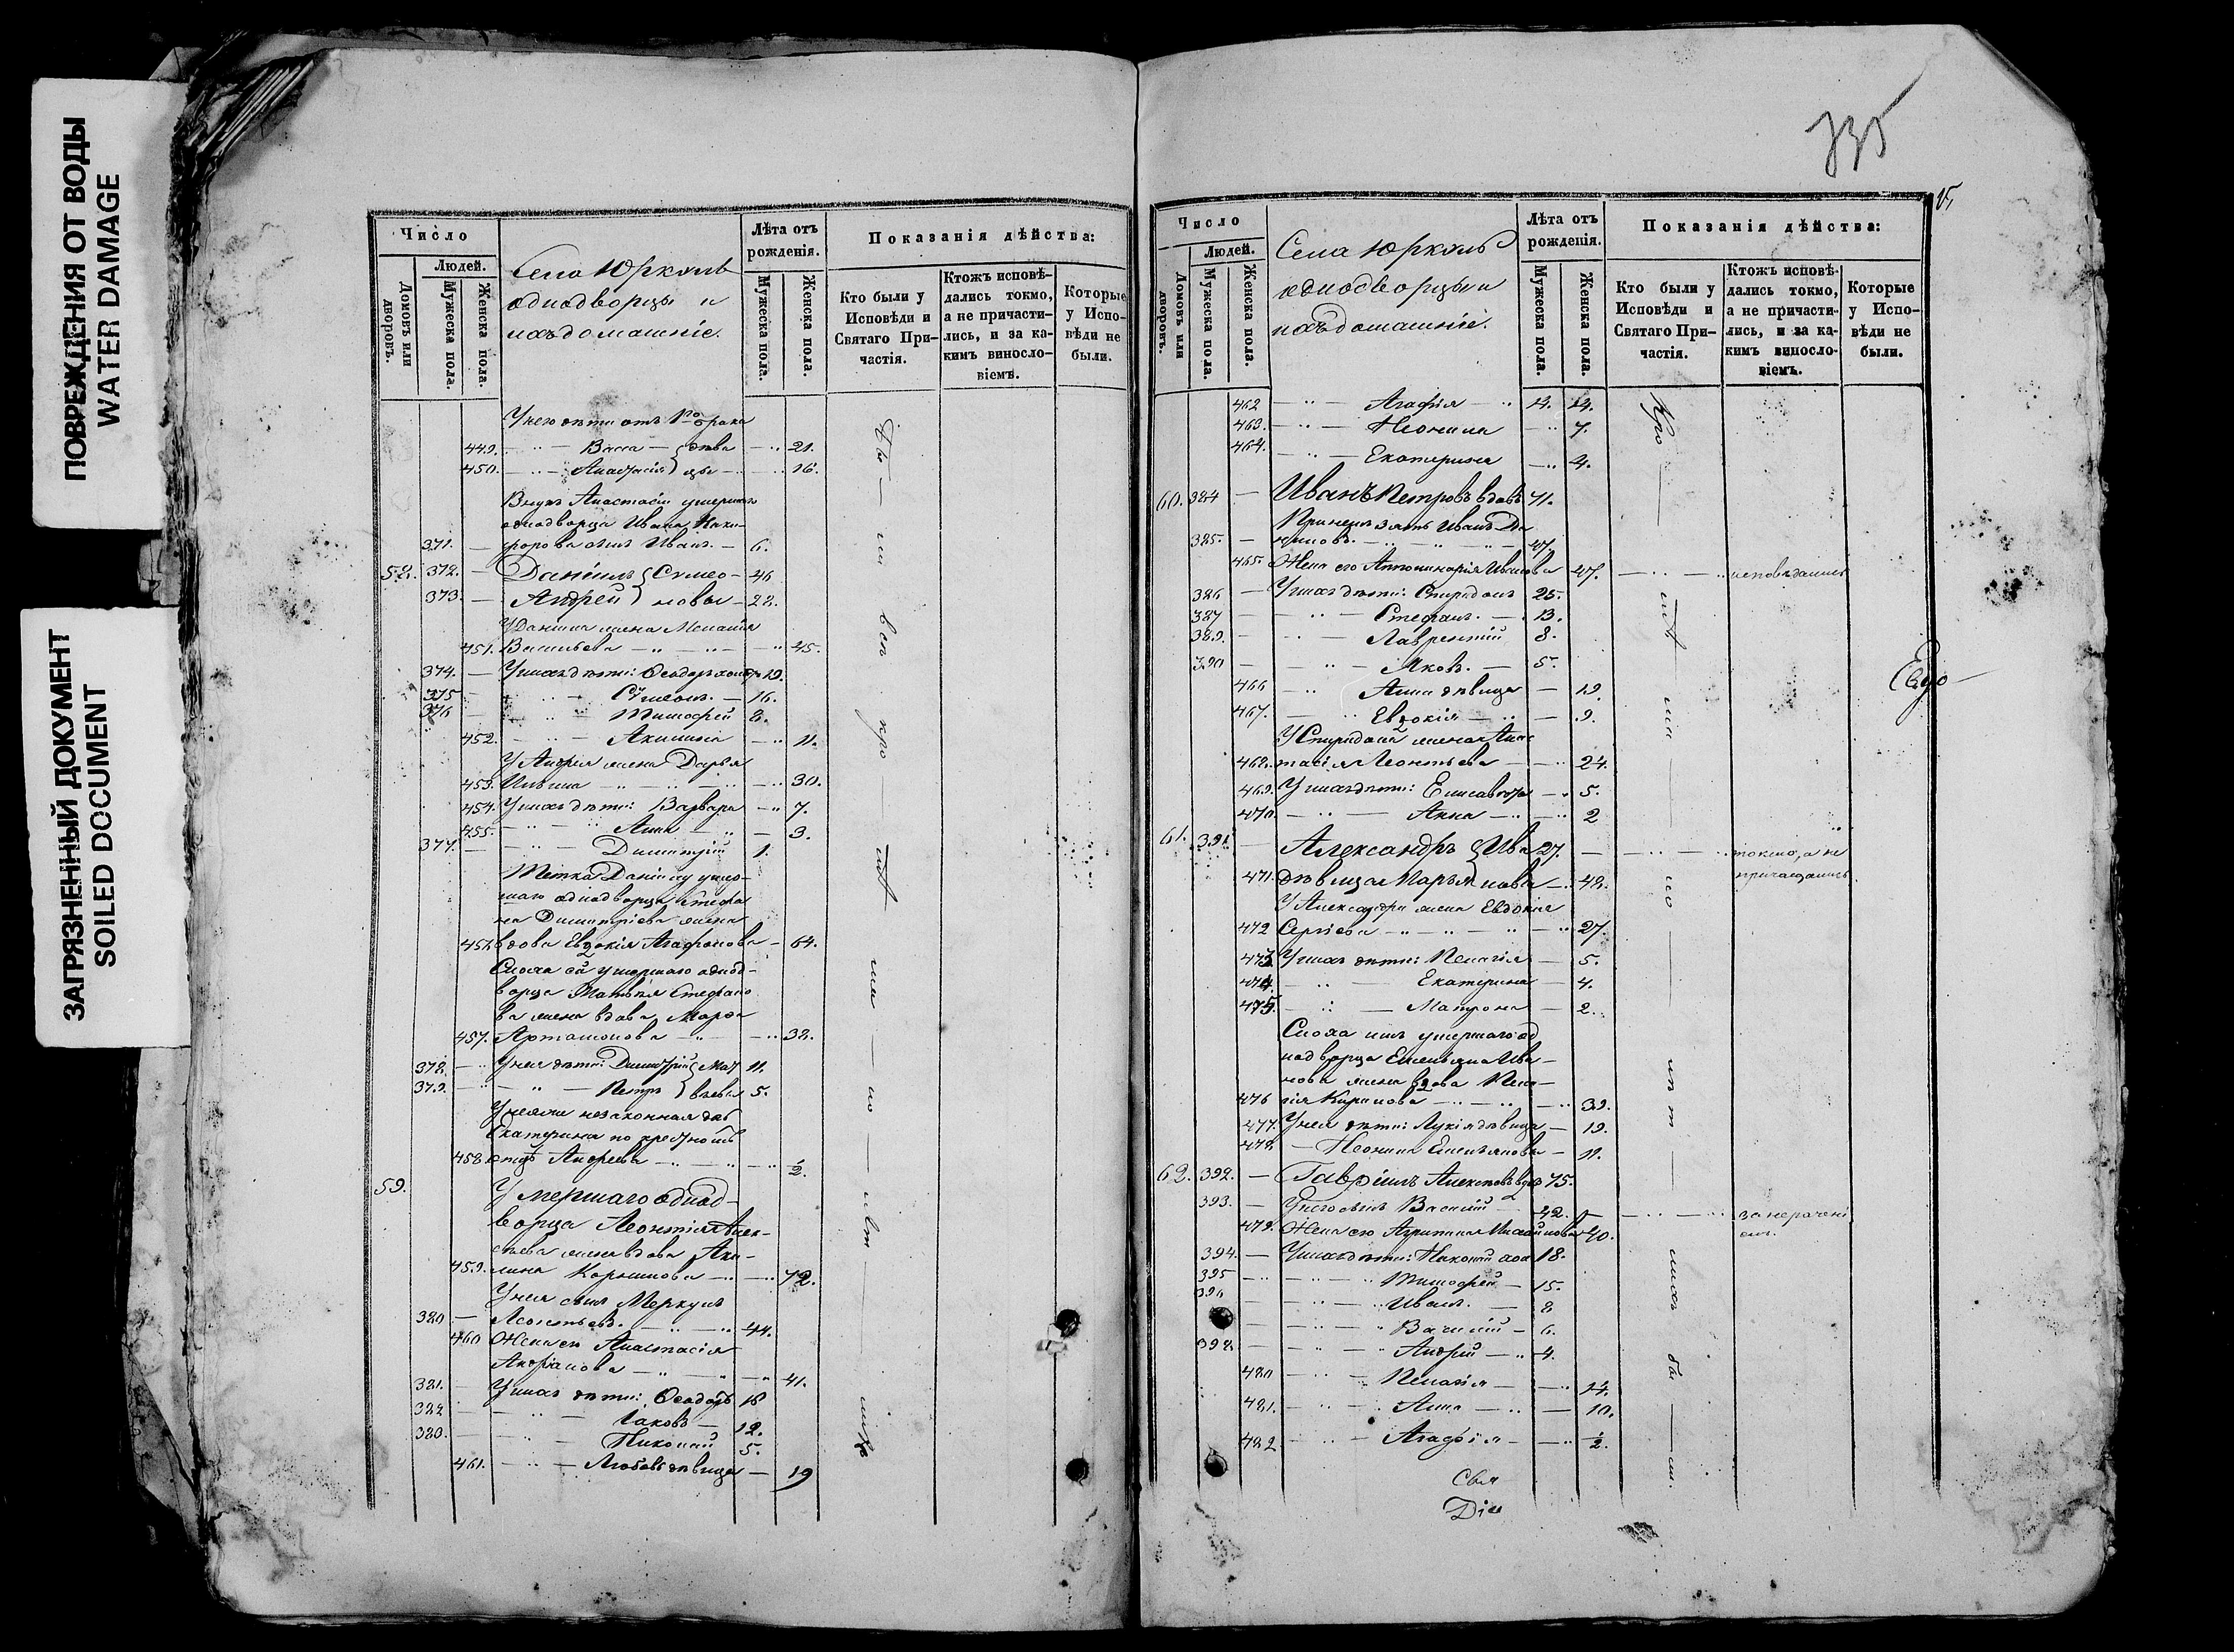 ПОВРЕЖДЕНИЯ ОТ ВОДЫ
WATER DAMAGE
ЗАГРЯЗНЕННЫЙ ДОКУМЕНТ
SOILED DOCUMENT
Число
Людей.
Домовъ или дворовъ.
Мужеска пола.
Женска пола.
Села Юрколъ
однодворцы и
ихъ домашніе.
Лѣта отъ рожденія.
Мужеска пола.
Женска пола.
Показанія дѣйства:
Кто были у Исповѣди и Святаго Причастія.
Ктожъ исповѣдались токмо, а не причастились, и за какимъ винословіемъ.
Которые у Исповѣди не были.
У него дѣти отъ 1го брака
449. Васса дѣви 21.
450. Анастасія цы 16.
Внукъ Анастасіи умершаго
однодворца Ивана Ники-
371. форова сынъ Иванъ. 6.
58. 372. Даніилъ Симео- 46
373. Андрей новы 22.
У Даніила жена Меланія
451. Васильева 45.
374. У нихъ дѣти: Ѳеодоръ 19.
375 Сѵмеонъ. 16.
376 Тимофей 8.
452. Акилина 11.
У Андрея жена Дарья
453. Ильина 30.
454. У нихъ дѣти: Варвара 7.
455. Анна 3.
377. Димитрій 1.
Тетка Даніилу умер-
шаго однодворца Стефа
на Димитріева жена
вдова Евдокія Агафонова 64.
Сноха ей умершаго однод-
ворца Матвѣя Стефано
ва жена вдова Марфа
457. Артамонова 38.
378. У нея дѣти: Димитрій Мат 11.
379. Петръ вѣевы 5.
У нея же незаконная дочь
Екатерина по крестному
458. отцу Андреева ½.
59. Умершаго однод-
ворца Леонтія Алек-
сѣева жена вдова Аки-
459. лина Корнилова 72.
У нея сынъ Меркулъ
380 Леонтьевъ. 44.
460 Жена его Анастасія
Андріанова 41.
381. У нихъ дѣти: Ѳеодоръ 18
382 Іаковъ 12.
380. Николай 5.
461. Любовь дѣвица 19
735
Число
Людей.
Домовъ или дворовъ.
Мужеска пола.
Женска пола.
Села Юрколъ
однодворцы и
ихъ домашніе.
Лѣта отъ рожденія.
Мужеска пола.
Женска пола.
Показанія дѣйства:
Кто были у Исповѣди и Святаго Причастія.
Ктожъ исповѣдались токмо, а не причастились, и за какимъ винословіемъ.
Которые у Исповѣди не были.
462 Агафія 14.
463. Неонила 7.
464. Екатерина 4.
60. 384 Иванъ Петровъ вдовъ 71.
При немъ зять Иванъ
385. 47.
465. Жена его Аполинарія Иванова 47. исповѣдались
386 У нихъ дѣти: Спиридонъ 25.
387 Стефанъ. 13.
389. Лаврентій 8.
390 Яковъ. 5.
466 Анна дѣвица 19.
467. Евдокія 9.
У Спиридона жена Анас
468. тасія Леонтьева 24.
469. У нихъ дѣти: Елисавета 5.
470 Анна 2
61. 391. Александръ Ива 27. токмо, а не
471. дѣвица Марья новы 48. причащались
У Александра жена Евдокія
472 Сергѣева 27.
473 У нихъ дѣти: Пелагія 5.
474 Екатерина 4.
475. Матрона 2.
Сноха имъ умершаго од
нодворца Емельяна Ива-
нова жена вдова Пела-
476 гія Карпова 39.
477. У нея дѣти: Лукія дѣвица 19.
478. Неонила Емельянова 11.
62. 392. Гавріилъ Алексѣевъ вдов 75.
393. У него сынъ Василій 42. за нерачені
479. Жена его Агрипина Михайлова 40. емъ.
394. У нихъ дѣти: Николай хол 18.
395 Тимофей 15.
396 Иванъ. 8
Василій 6.
398. Андрей 4.
480 Пелагія 14.
481. Анна 10.
482 Агафія ½.
Свя
Діа